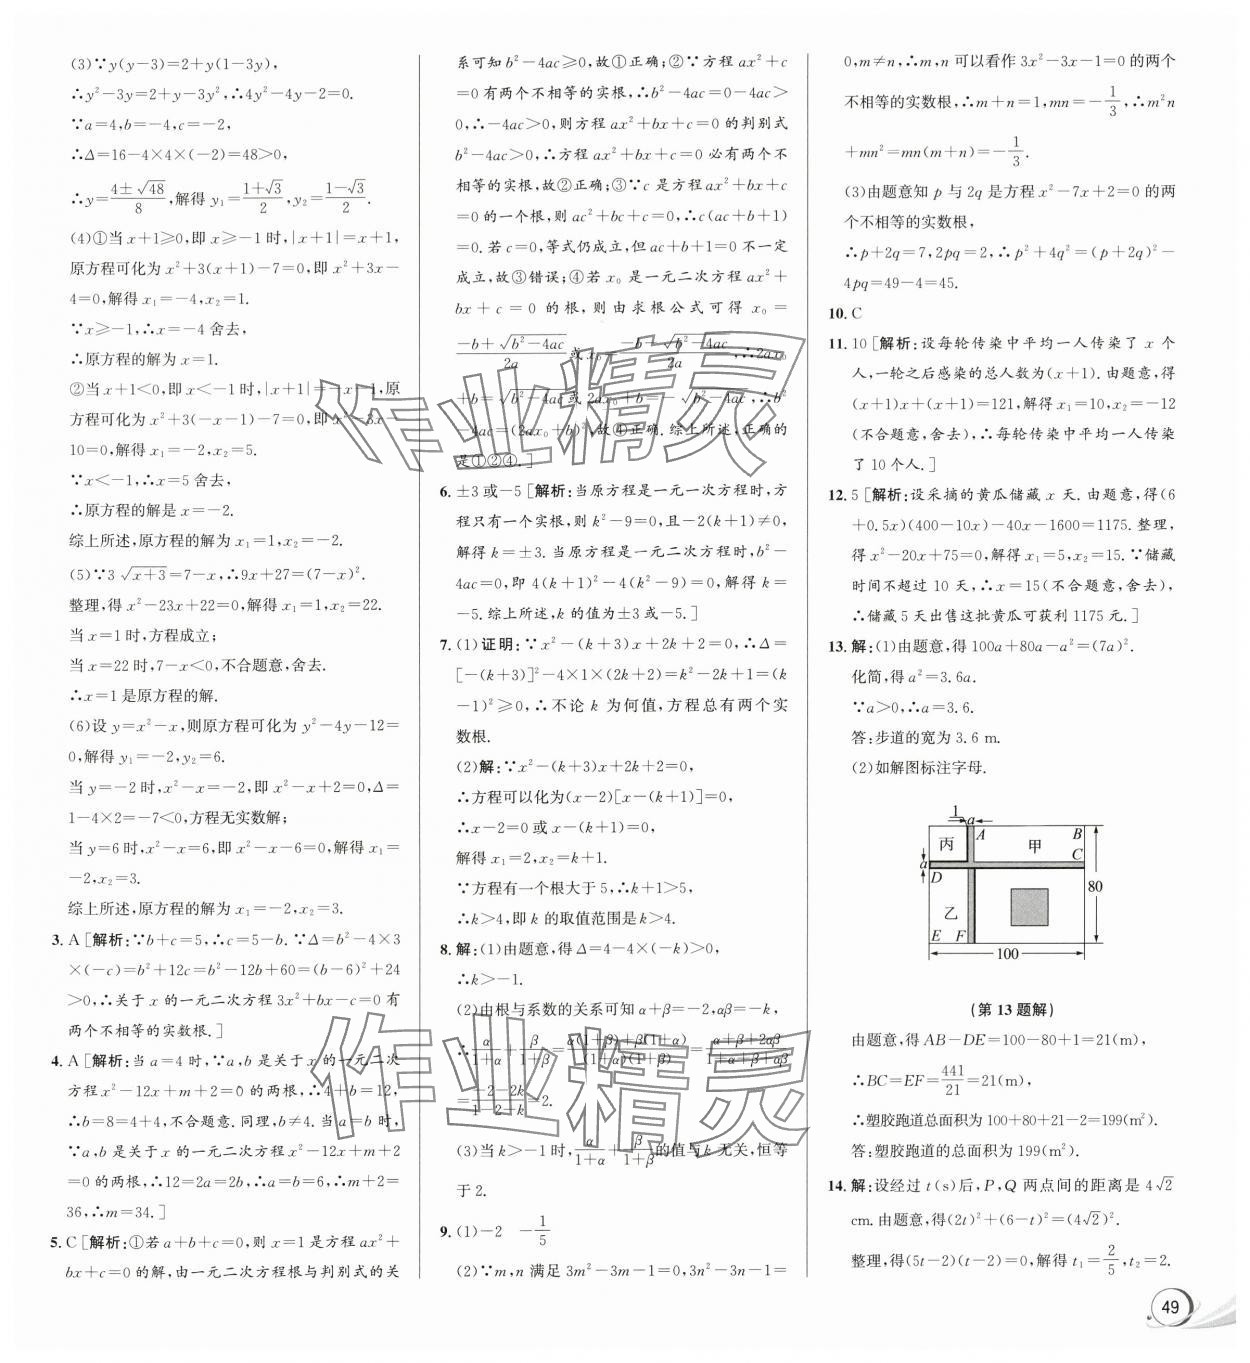 (3)∵y(y-3)=2+y(1-3y),
∴y²-3y=2+y-3y²,∴4y²-4y-2=0.
∵a=4,b=-4,c=-2,
∴Δ=16-4×4×(-2)=48>0,
∴y=(4±√48)/8,解得 y₁=(1+√3)/2,y₂=(1-√3)/2.
(4)①当 x+1≥0,即 x≥-1 时,|x+1|=x+1,
原方程可化为 x²+3(x+1)-7=0,即 x²+3x-
4=0,解得 x₁=-4,x₂=1.
∵x≥-1,∴x=-4 舍去,
∴原方程的解为 x=1.
②当 x+1<0,即 x<-1 时,|x+1|=-x-1,原
方程可化为 x²+3(-x-1)-7=0,即 x²-3x-
10=0,解得 x₁=-2,x₂=5.
∵x<-1,∴x=5 舍去,
∴原方程的解是 x=-2.
综上所述,原方程的解为 x₁=1,x₂=-2.
(5)∵3√(x+3)=7-x,∴9x+27=(7-x)².
整理,得 x²-23x+22=0,解得 x₁=1,x₂=22.
当 x=1 时,方程成立;
当 x=22 时,7-x<0,不合题意,舍去.
∴x=1 是原方程的解.
(6)设 y=x²-x,则原方程可化为 y²-4y-12=
0,解得 y₁=-2,y₂=6.
当 y=-2 时,x²-x=-2,即 x²-x+2=0,Δ=
1-4×2=-7<0,方程无实数解;
当 y=6 时,x²-x=6,即 x²-x-6=0,解得 x₁=
-2,x₂=3.
综上所述,原方程的解为 x₁=-2,x₂=3.
3. A [解析:∵b+c=5,∴c=5-b.∵Δ=b²-4×3
×(-c)=b²+12c=b²-12b+60=(b-6)²+24
>0,∴关于 x 的一元二次方程 3x²+bx-c=0 有
两个不相等的实数根.]
4. A [解析:当 a=4 时,∵a,b 是关于 x 的一元二次
方程 x²-12x+m+2=0 的两根,∴4+b=12,
∴b=8=4+4,不合题意.同理,b≠4.当 a=b 时,
∵a,b 是关于 x 的一元二次方程 x²-12x+m+2
=0 的两根,∴12=2a=2b,∴a=b=6,∴m+2=
36,∴m=34.]
5. C [解析:①若 a+b+c=0,则 x=1 是方程 ax²+
bx+c=0 的解,由一元二次方程根与判别式的关
系可知 b²-4ac≥0,故①正确;②∵方程 ax²+c
=0 有两个不相等的实根,∴b²-4ac=0-4ac>
0,∴-4ac>0,则方程 ax²+bx+c=0 的判别式
b²-4ac>0,∴方程 ax²+bx+c=0 必有两个不
相等的实根,故②正确;③∵c 是方程 ax²+bx+c
=0 的一个根,则 ac²+bc+c=0,∴c(ac+b+1)
=0.若 c=0,等式仍成立,但 ac+b+1=0 不一定
成立,故③错误;④若 x₀ 是一元二次方程 ax²+
bx+c=0 的根,则由求根公式可得 x₀=
(-b+√(b²-4ac))/2a 或 x₀=(-b-√(b²-4ac))/2a,∴2ax₀
+b=√(b²-4ac)或 2ax₀+b=-√(b²-4ac),∴b²
-4ac=(2ax₀+b)²,故④正确.综上所述,正确的
是①②④.]
6. ±3 或-5 [解析:当原方程是一元一次方程时,方
程只有一个实根,则 k²-9=0,且-2(k+1)≠0,
解得 k=±3.当原方程是一元二次方程时,b²-
4ac=0,即 4(k+1)²-4(k²-9)=0,解得 k=
-5.综上所述,k 的值为±3 或-5.]
7. (1)证明:∵x²-(k+3)x+2k+2=0,∴Δ=
[-(k+3)]²-4×1×(2k+2)=k²-2k+1=(k
-1)²≥0,∴不论 k 为何值,方程总有两个实
数根.
(2)解:∵x²-(k+3)x+2k+2=0,
∴方程可以化为(x-2)[x-(k+1)]=0,
∴x-2=0 或 x-(k+1)=0,
解得 x₁=2,x₂=k+1.
∵方程有一个根大于 5,∴k+1>5,
∴k>4,即 k 的取值范围是 k>4.
8. 解:(1)由题意,得 Δ=4-4×(-k)>0,
∴k>-1.
(2)由根与系数的关系可知 α+β=-2,αβ=-k,
∴α/(1+α)+β/(1+β)=(α(1+β)+β(1+α))/((1+α)(1+β))=(α+β+2αβ)/(1+α+β+αβ)
=(-2-2k)/(1-2-k)=2.
(3)当 k>-1 时,α/(1+α)+β/(1+β)的值与 k 无关,恒等
于 2.
9. (1)-2 -1/5
(2)∵m,n 满足 3m²-3m-1=0,3n²-3n-1=
0,m≠n,∴m,n 可以看作 3x²-3x-1=0 的两个
不相等的实数根,∴m+n=1,mn=-1/3,∴m²n
+mn²=mn(m+n)=-1/3.
(3)由题意知 p 与 2q 是方程 x²-7x+2=0 的两
个不相等的实数根,
∴p+2q=7,2pq=2,∴p²+4q²=(p+2q)²-
4pq=49-4=45.
10. C
11. 10 [解析:设每轮传染中平均一人传染了 x 个
人,一轮之后感染的总人数为(x+1).由题意,得
(x+1)x+(x+1)=121,解得 x₁=10,x₂=-12
(不合题意,舍去),∴每轮传染中平均一人传染
了 10 个人.]
12. 5 [解析:设采摘的黄瓜储藏 x 天.由题意,得(6
+0.5x)(400-10x)-40x-1600=1175.整理,
得 x²-20x+75=0,解得 x₁=5,x₂=15.∵储藏
时间不超过 10 天,∴x=15(不合题意,舍去),
∴储藏 5 天出售这批黄瓜可获利 1175 元.]
13. 解:(1)由题意,得 100a+80a-a²=(7a)².
化简,得 a²=3.6a.
∵a>0,∴a=3.6.
答:步道的宽为 3.6 m.
(2)如解图标注字母.
1
a
丙 A 甲 B
C
a
D
80
乙
E F
100
(第 13 题解)
由题意,得 AB-DE=100-80+1=21(m),
∴BC=EF=441/21=21(m),
∴塑胶跑道总面积为 100+80+21-2=199(m²).
答:塑胶跑道的总面积为 199(m²).
14. 解:设经过 t(s)后,P,Q 两点间的距离是 4√2
cm.由题意,得(2t)²+(6-t)²=(4√2)².
整理,得(5t-2)(t-2)=0,解得 t₁=2/5,t₂=2.
49
作业精灵
作业精灵